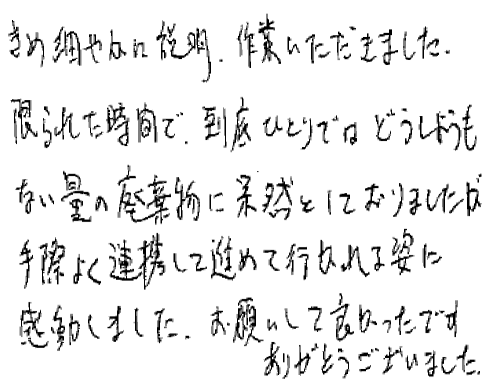 きめ細やかに説明、作業いただきました。
限られた時間で、到底ひとりではどうしようも
ない量の廃棄物に呆然としておりましたが
手際よく連携して進めて行かれる姿に
感動しました。お願いして良かったです
ありがとうございました。